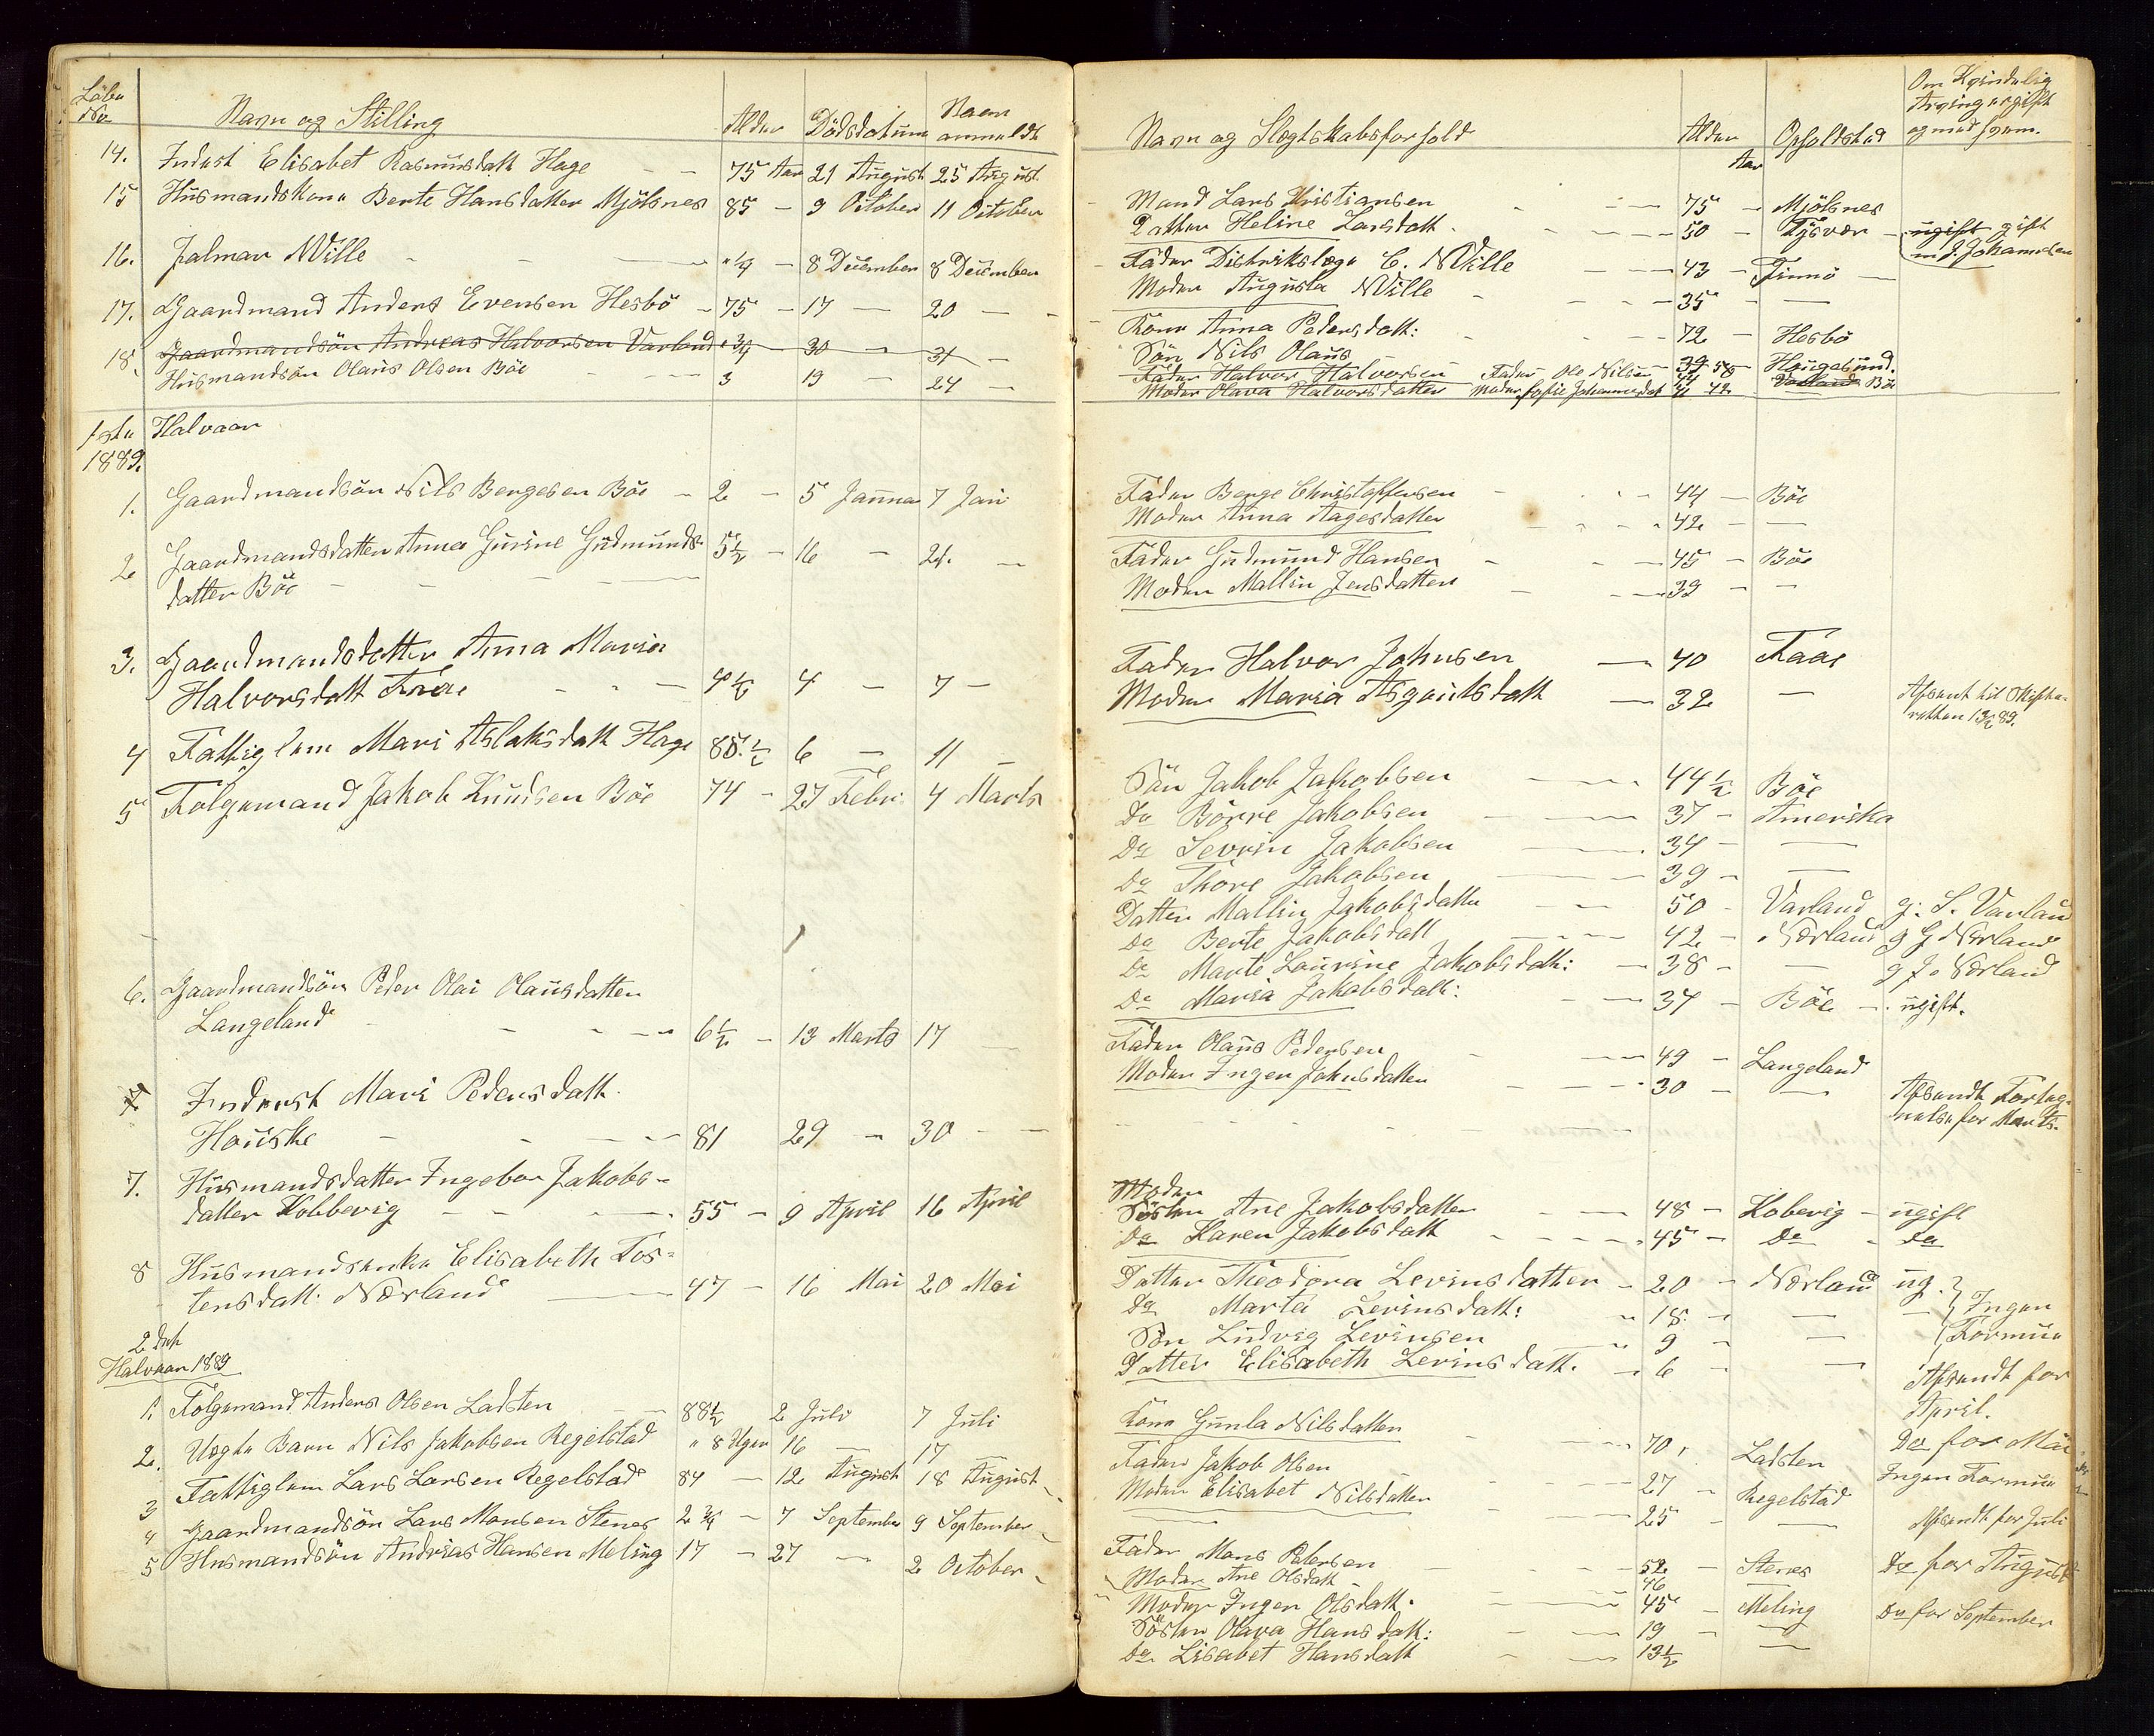 Löbe
No
Navn og Stilling
Alder
Dödsdatum
Naar
anmeldt
14. Inderst Elisabet Rasmusdatt Hage - - 75 Aar 21 August 25 August
15 Husmandskone Berte Hansdatter Mjölsnes 85 - 9 October 11 October
16. Jalmar Wille - - " 1/4 - 8 December 8 December
17. Gaardmand Anders Evensen Hesbö - 75 - 17 - 20 -
18. Gaardmandsön Andreas Halvorsen Varland " 3/4 30 - 31 -
Husmandsön Olaus Olsen Böe - 3 19 - 24 -
1ste Halvaar
1889.
1. Gaardmandsön Nils Bergesen Böe - 2 - 5 Januar 7 Jan
2 Gaardmandsdatter Anna Gurine Gudmunds-
datter Böe - - - 5 1/2 - 16 - 21. -
3. Gaardmandsdatter Anna Maria
Halvorsdatt Faae - - - 4 1/2 4 - 7 -
4 Fattiglem Mari Aslaksdatt Hage 85 1/2 6 - 11 -
5 Folgemand Jakob Knudsen Böe 74 - 27 Febr. 4 Marts
6. Gaardmandsön Peder Olai Olausdatter
Langeland - - - 6 1/2 - 13 Marts 17
Inderst Mari Pedersdatt.
Hauske - - - 81 29 - 30 -
7. Husmandsdatter Ingebor Jakobs-
datter Kobbevig - - - 55 - 9 April 16 April
8 Husmandsenke Elisabeth Tos-
tensdatt. Nærland - 47 - 16 Mai 20 Mai
2det
Halvaar 1889
1. Folgemand Anders Olsen Ladsten 88 1/2 2 Juli 7 Juli
2. Uægte Barn Nils Jakobsen Regelstad " 8 Uger 16 - 17 -
3 Fattiglem Lars Larsen Regelstad 84 - 12 August 18 August
4 Gaardmandsön Lars Monsen Stenes 2 3/4 - 7 September 9 September
5 Husmandsön Andreas Hansen Meling 17 - 27 - 2 October
Navn og Slegtskabsforhold
Alder
Aar
Opholdsted
Om Kvindelig
Arving er gift
og med hvem.
Mand Lars Kristiansen - - 75 - Mjölsnes
Datter Heline Larsdatt - - 50 - Tysvær - ugift gift
m J. Johannesen
Fader Distrikslæge C. Wille - - 43 - Finnö -
Moder Augusta Wille - - 35 -
Kone Anna Pedersdatt: - - 72 - Hesbö
Sön Nils Olaus - 39 Haugesund.
Fader Halvor Halvorsen Fader Ole Nilsen 58
Moder Olava Halvorsdatter Moder Sofie Johannesdat 41 42 Varland Böe
Fader Berge Christoffersen - - 44 - Böe
Moder Anna Aagesdatter - - 42 - -
Fader Gudmund Hansen - - 45 - Böe
Moder Mallin Jensdatter - - 39 - -
Fader Halvor Johnsen - 40 Faae
Moder Maria Asgautsdatt - 32 -
Afsent til Skifte-
retten 13/2 89.
Sön Jakob Jakobsen - 44 1/2 Böe
Do Börre Jakobsen - 37 - Amerika
Do Sevrin Jakobsen - 34 - -
Do Thore Jakobsen - 39 - -
Datter Mallin Jakobsdatter - 50 - Varland g: S. Varland
Do Berte Jakobsdatt - 42 - Nærland g G Nærland
Do Marte Laurine Jakobsdatt: - 38 - - g J. Nærland
Do Maria Jakobsdatt: - 34 - Böe - ugift.
Fader Olaus Pedersen - 49 - Langeland
Moder Inger Johnsdatter - 30 - -
Afsendt Forteg-
nelse for Marts.
Moder
Söster Ane Jakobsdatter - 48 - Kobevig - ugift
Do Karen Jakobsdatt - 45 - Do - Do
Datter Theodora Levinsdatter - 20 - Nærland ug.
Do Marta Levinsdatt: " 18 - - - Ingen
Sön Ludvig Levinsen " 9 - - Formue
Datter Elisabeth Levinsdatt. - 6 - -
Afsendt for
April.
Kone Gunla Nilsdatter - 70, Ladsten Do for Mai
Fader Jakob Olsen - 27 - Regelstad Ingen Formue
Moder Elisabet Nilsdatter - 25 - -
Afsendt for Juli
Fader Mons Petersen - 52 - Stenes Do for August
Moder Ane Olsdatt - 46
Moder Inger Olsdatt. - 45 - Meling Do for September
Söster Olava Hansdatt: - 19 - -
Do Lisabet Hansdatt - 13 1/2 -